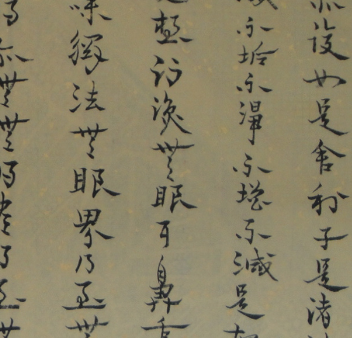 亦復如是舍利子是諸
不垢不淨不增不減是
想行識無眼耳鼻舌
味觸法無眼界乃至無
明亦無無明盡乃至無